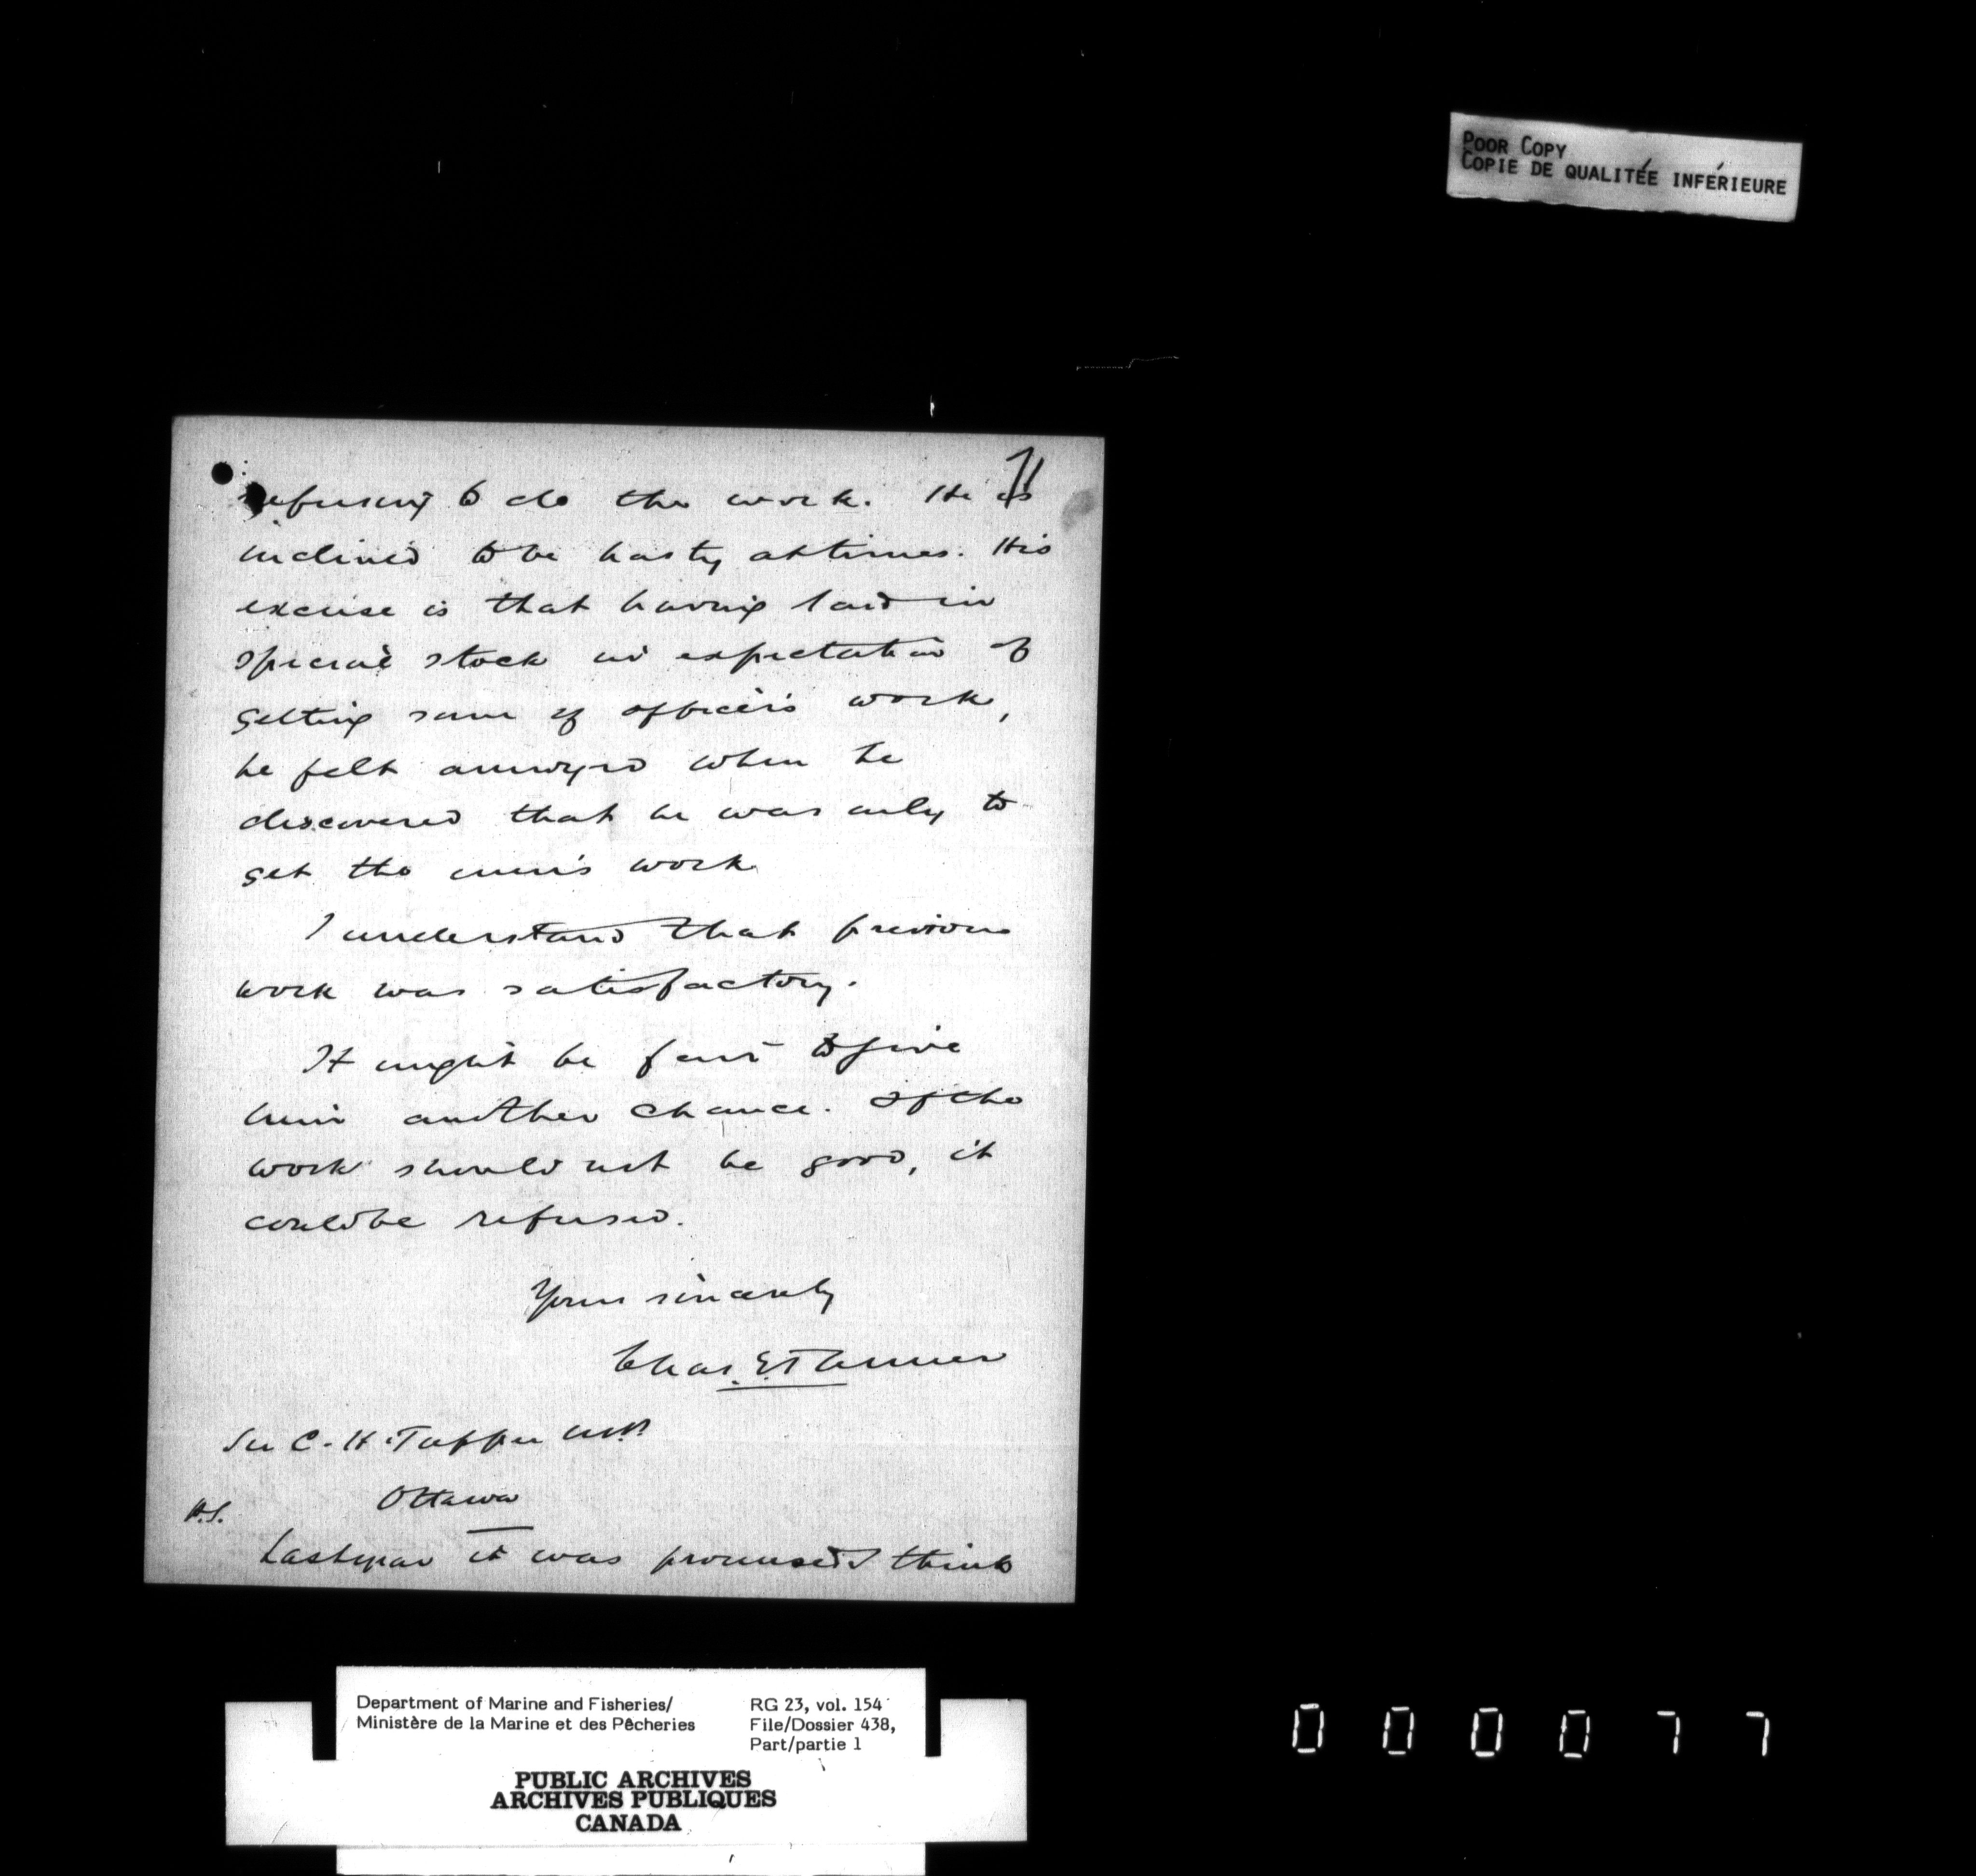 POOR COPY
COPIE DE QUALITÉE INFÉRIEURE
71
refusing to do the work. He is
inclined to be hasty at times. His
excuse is that having laid in
special stock in expectation of
getting some of officers work,
he felt annoyed when he
discovered that he was only to
get the men's work
I understand that previous
work was satisfactory.
It might be fair to give
him another chance. If the
work should not be good, it
could be refused.
Yours sincerely
Chas. E. Tanner
Sir C. H. Tupper M.P.
Ottawa
P.S.
Last year it was promised I think
Department of Marine and Fisheries/
Ministère de la Marine et des Pêcheries
RG 23, vol. 154
File/Dossier 438,
Part/partie 1
PUBLIC ARCHIVES
ARCHIVES PUBLIQUES
CANADA
000077